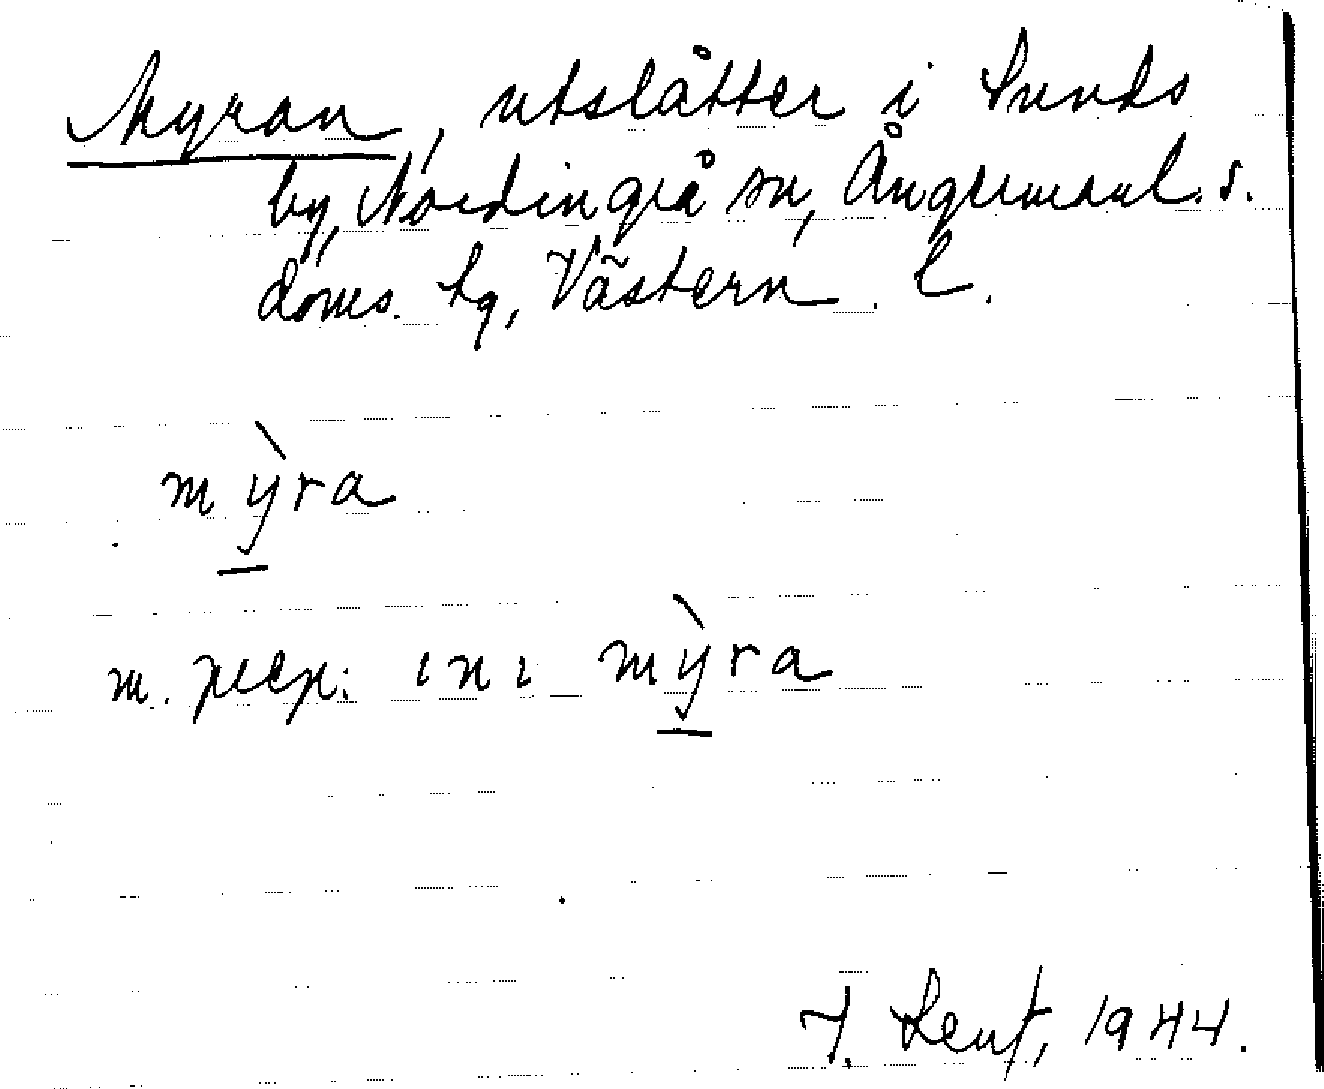 Myran, utslåtter i Sunds
by, Nordingrå sn, Ångermanl. s.
doms. hg, Västern. l.
mỳra
m. prep: ını mỳra
T. Lenf, 1944.